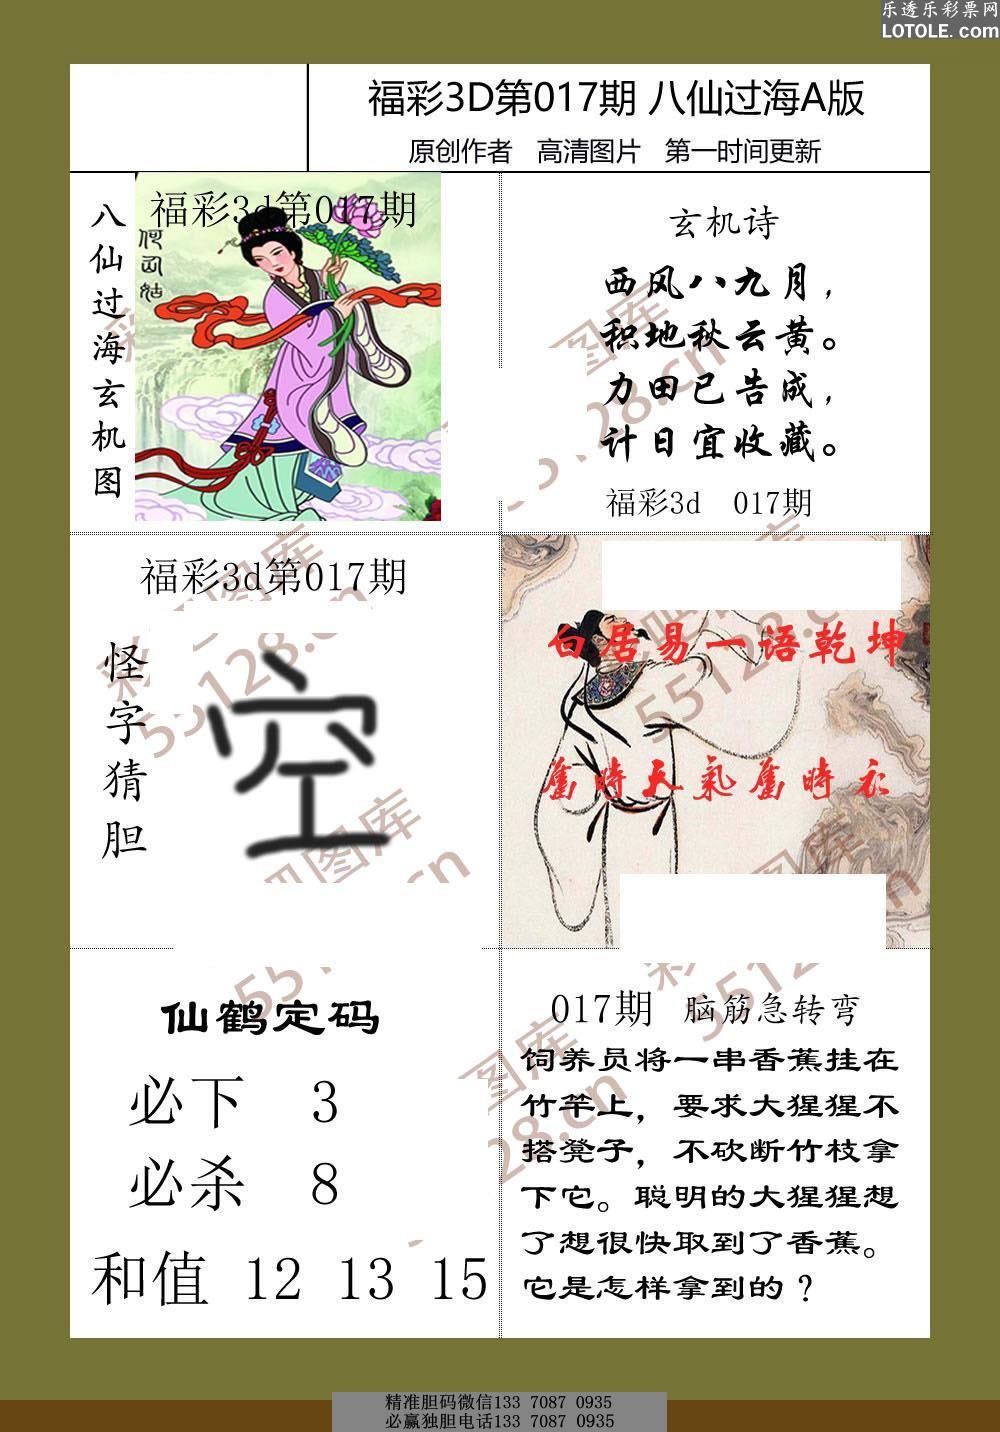 乐透乐彩票网
LOTOLE.com
福彩3D第017期 八仙过海A版
原创作者 高清图片 第一时间更新
八仙过海玄机图
福彩3d第017期
何仙姑
玄机诗
西风八九月，
积地秋云黄。
力田已告成，
计日宜收藏。
福彩3d 017期
福彩3d第017期
怪字猜胆
空
白居易一语乾坤
舊時天氣舊時衣
仙鹤定码
必下 3
必杀 8
和值 12 13 15
017期 脑筋急转弯
饲养员将一串香蕉挂在
竹竿上，要求大猩猩不
搭凳子，不砍断竹枝拿
下它。聪明的大猩猩想
了想很快取到了香蕉。
它是怎样拿到的？
精准胆码微信133 7087 0935
必赢独胆电话133 7087 0935